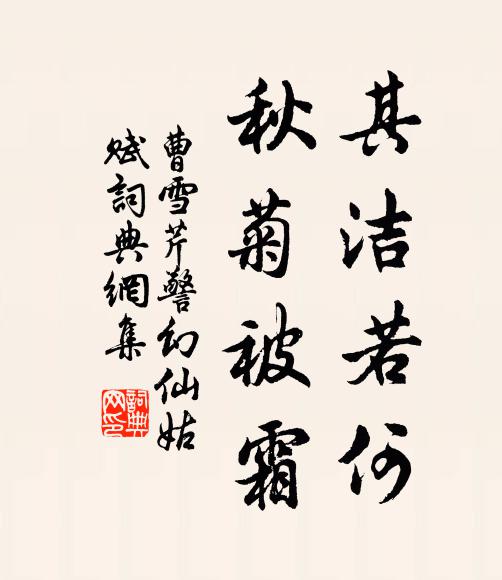 其洁若何
秋菊被霜
曹雪芹警幻仙姑
赋詞典網集
詞典
网印